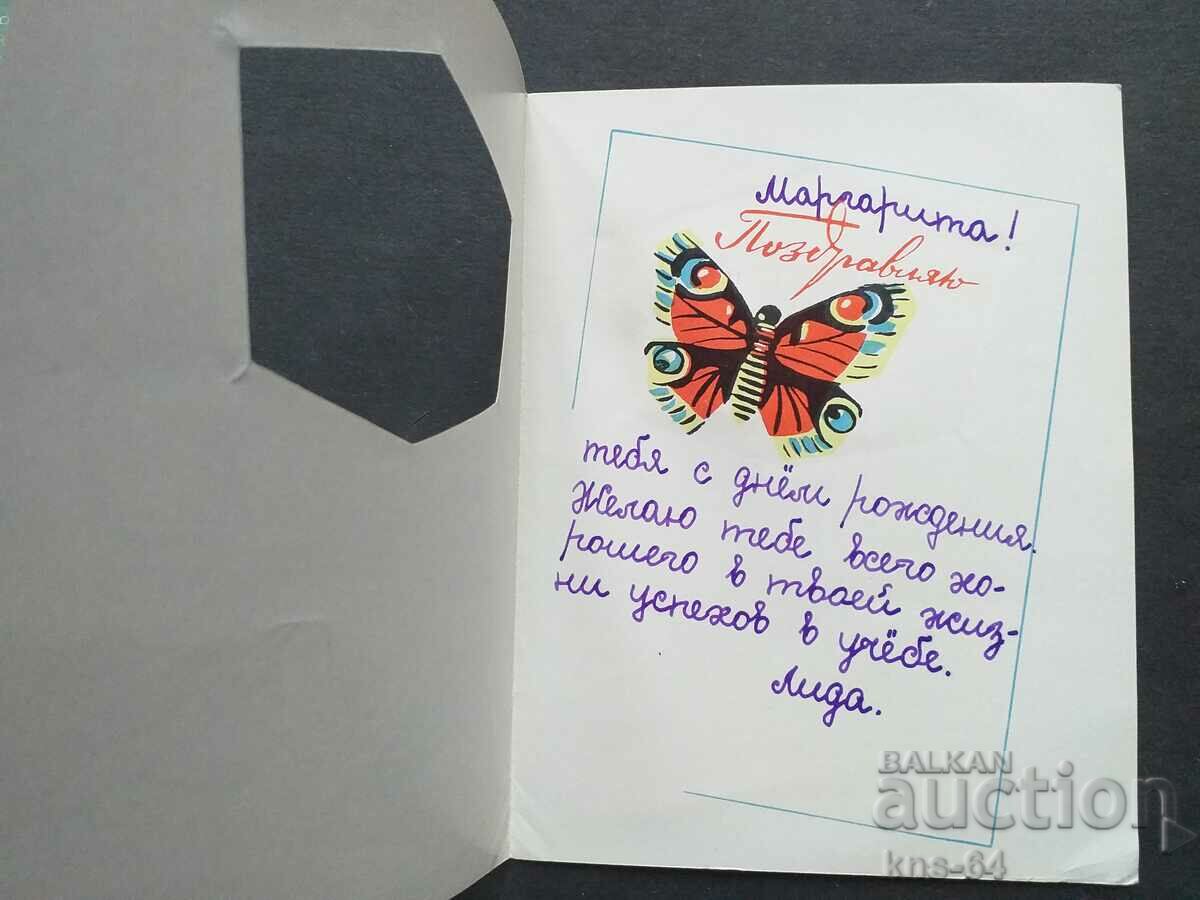 Маргарита!
Поздравляю
тебя с днём рождения.
Желаю тебе всего хо-
рошего в твоей жиз-
ни успехов в учёбе.
Лида.
BALKAN
auction
kns-64